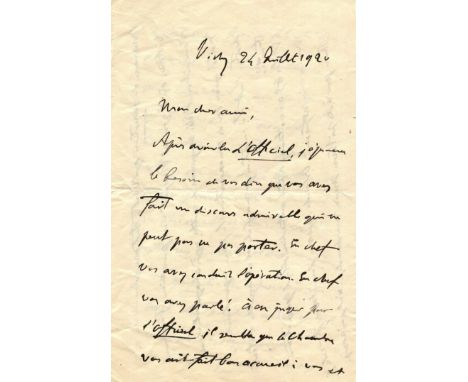 Vichy 24 Juillet 1920
Mon cher ami,
Après avoir lu L'Officiel, j'éprouve
le besoin de vous dire que vous avez
fait un discours admirable qui ne
peut pas ne pas porter. En chef
vous avez conduit l'opération. En chef
vous avez parlé. à en juger par
l'Officiel, il semble que la Chambre
vous ait fait bon accueil à vos et